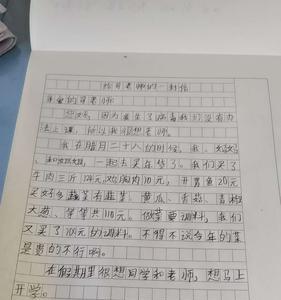 给司老师的一封信
亲爱的司老师:
您好,因为发生了病毒我们没有办
法上课,所以我很想老师。
我在腊月二十八的时候,我、
一起去买年货了。我们买了
牛肉三斤124元,鸡胸肉10元,
买好多蔬菜有韭菜、黄瓜、青菜、
大葱,等等共110元。做菜要调料,我们
又买了100元的调料。不得不说今年的菜
是贵的不行啊。
在假期里很想同学和老师,想马上
开学。